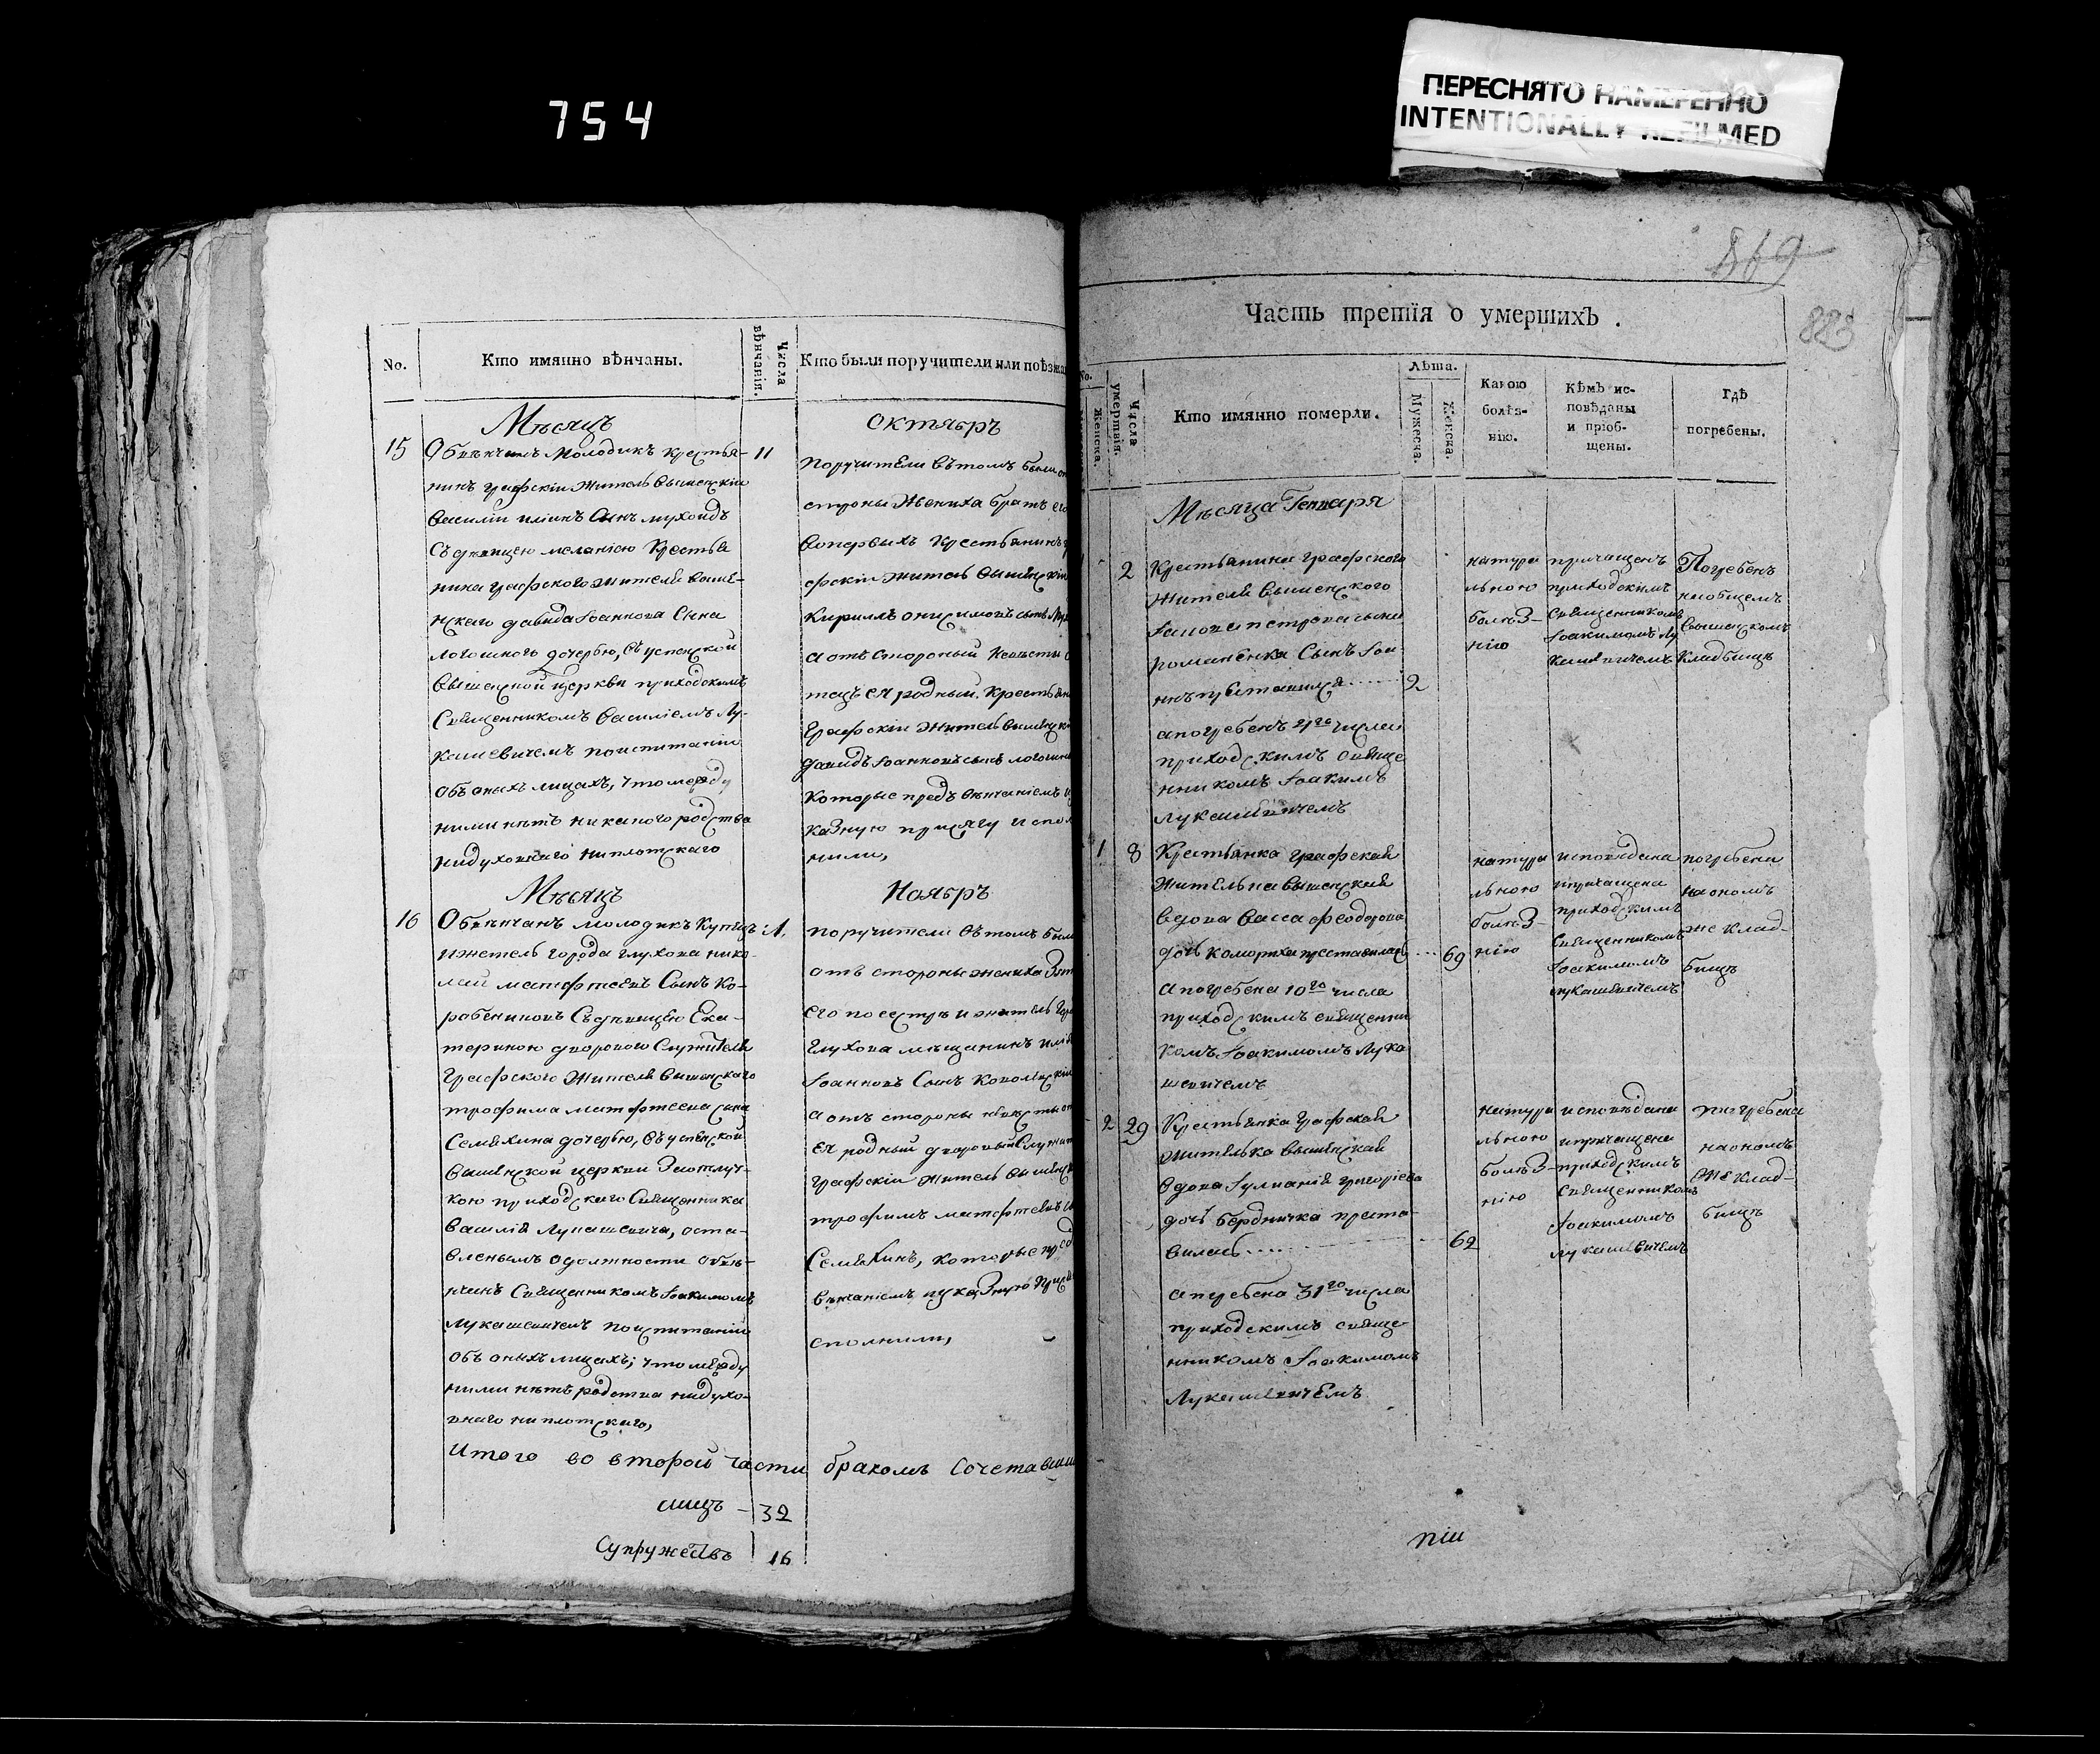 754
ПЕРЕСНЯТО НАМЕРЕННО
INTENTIONALLY REFILMED
No.
Кто имянно вѣнчаны.
Числа вѣнчанія.
Кто были поручители или поѣзжа
Мѣсяцъ
Октябръ
15
Обвѣнчанъ молодикъ крестья-
нинъ графскій житель вышенскій
Василій Иліинъ сынъ Мухоидъ
съ дѣвицею Меланіею крестья
нина графского жителя выше-
нскаго Давида Іоаннова сына
дочерью, въ Успенской
вышенской церкви приходскимъ
священникомъ Василіемъ Лу-
кашевичемъ по испитаніи
объ оныхъ лицахъ, что между
ними нѣтъ никакого родства
ни духовнаго ни плотскаго
11
поручители въ томъ были
стороны жениха братъ его
вопервыхъ крестьянинъ
фскій житель вышенскій
Кириллъ Онисимовъ сынъ
а отъ стороны невѣсты
тецъ ея родный крестьян
графскій житель вышенск
Давидъ Іоанновъ сынъ
которые предъ вѣнчаніемъ
казную присягу испол
нили,
Мѣсяцъ
Ноябръ
16
Обвѣнчанъ молодикъ купецъ
и житель города Глухова Нико-
лай Матфѣевъ сынъ Ко-
рабениковъ съ дѣвицею Ека-
териною двороваго служителя
графского жителя вышенскаго
Трофима Матфѣева сына
Семехина дочерью, въ Успенской
вышенской церкви за отлуч-
кою приходскаго священника
Василія Лукашевича, оста-
вленымъ одолжности обвѣ-
нчанъ священникомъ Іоакимомъ
Лукашевичемъ по испитаніи
объ оныхъ лицахъ, что между
ними нѣтъ родства ни духо-
внаго ни плотскаго,
поручители въ томъ были
отъ стороны жениха зят
его по сестрѣ и житель гор
Глухова мѣщанинъ Илі
Іоанновъ сынъ
а отъ стороны невѣсты от
ея родный дворовый служит
графскій житель вышенск
Трофимъ Матфѣевъ
Семехинъ, которые пред
вѣнчаніемъ указную прис
сполнили,
Итого во второй части бракомъ сочетавши
лицъ - 32
Супружествъ 16
869
883
Часть третія о умершихъ.
No.
Женска.
Числа умертвія.
Кто имянно померли.
Лѣта.
Мужеска.
Женска.
Какою болѣз-
нію.
Кѣмъ ис-
повѣданы
и пріоб-
щены.
Гдѣ
погребены.
Мѣсяца Генваря
2
Крестьянина графского
жителя вышенского
Іакова Петрова сына
Романенка сынъ Іоа
ннъ преставился 2
а погребенъ 4го числа
приходскимъ свяще
нникомъ Іоакимъ
Лукашевичемъ
натура
льною
болѣз-
нію
причащенъ
приходскимъ
священникомъ
Іоакимомъ Лу
кашевичемъ
Погребенъ
на общемъ
вышенскомъ
кладбищѣ
1 8
Крестьянка графская
жителька вышенская
вдова Васса Феодорова
дочь Коморіха преставилась 69
а погребена 10го числа
приходскимъ священни
комъ Іоакимомъ Лука
шевичемъ
натура
льною
болѣз-
нію
исповѣдана
и причащена
приходскимъ
священникомъ
Іоакимомъ
Лукашевичемъ
погребена
на ономъ
же клад-
бищѣ
2 29
Крестьянка графская
жителька вышенская
вдова Іулианія Григоріева
дочь Бердничка преста-
вилась 62
а погребена 31го числа
приходскимъ свяще-
нникомъ Іоакимомъ
Лукашевичемъ
натура
льною
болѣз-
нію
исповѣдана
и причащена
приходскимъ
священникомъ
Іоакимомъ
Лукашевичемъ
погребена
на ономъ
же клад-
бищѣ